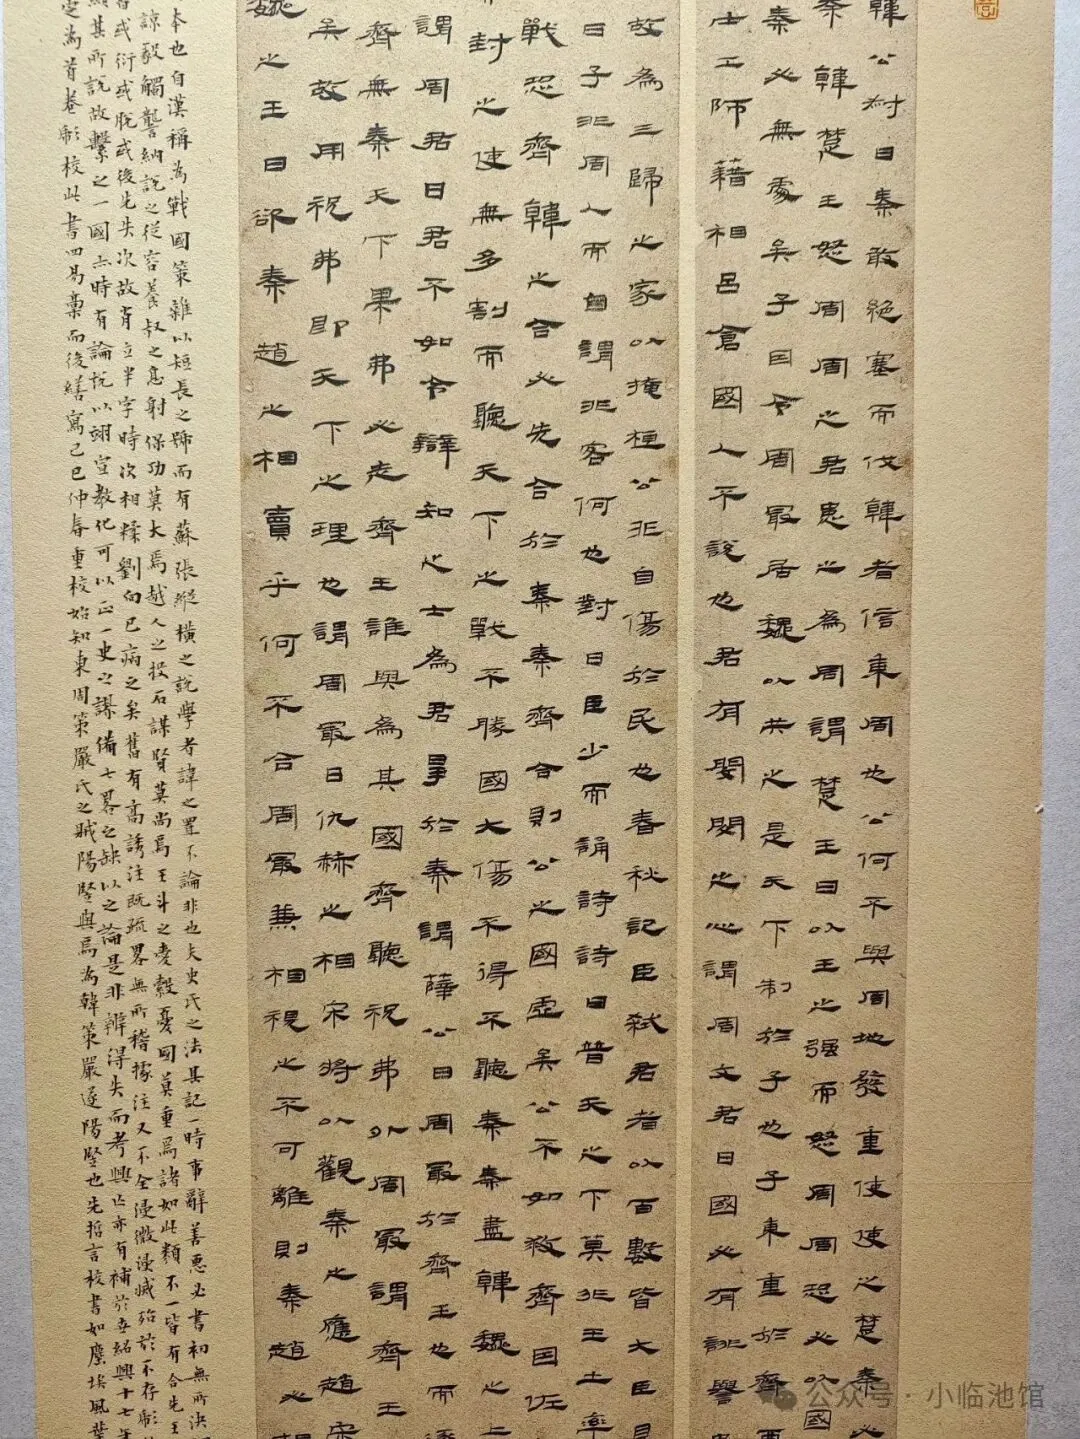 韓公對曰秦敢絕塞而伐韓者信東周也公何不與周地發重使使之楚秦必
秦韓楚王怒周周之君患之為周謂楚王曰以王之强而怒周周恐必以國
秦必無處矣子因令周最居魏以共之是天下制於子也子東重於齊西
士工師藉相呂倉國人不說也君有閔閔之心謂周文君曰國必有誹譽
故為三歸之家以掩桓公非自傷於民也春秋記臣弒君者以百數皆大臣見
曰子非周人而自謂非客何也對曰臣少而誦詩詩曰普天之下莫非王土率
戰恐齊韓之合必先合於秦秦齊合則公之國虛矣公不如救齊因佐
封之使無多割而聽天下之戰不勝國大傷不得不聽秦秦盡韓魏之上
謂周君曰君不如令辯知之士為君爭於秦謂薛公曰周最於齊王也而逐
齊無秦天下果弗必走齊王誰與為其國齊聽祝弗外周最謂齊王
矣故用祝弗即天下之理也謂周最曰仇赫之相宋將以觀秦之應趙宋
魏之王曰卻秦趙之相賣乎何不合周最兼相視之不可離則秦趙必
本也自漢稱為戰國策雜以短長之號而有蘇張縱橫之說學者諱之置不論非也夫史氏之法具記一時事辭善惡必書初無所決
諒毅觸讋納說之從容養叔之息射保功莫大焉越人之投石謀賢莫尚焉王斗之愛縠憂國莫重焉諸如此類不一皆有合先王
或衍或脫或後先失次故肖立半字時次相糅劉向已病之矣舊有高誘注既疏畧無所稽據注又不全浸微浸滅殆於不存彪
其所說故繫之一國亦時有論說以翊宣教化可以正一史之謬備七畧之缺以之論是非辨得失而考興亡亦有補於世紹興十七年
定為首卷彪校此書四易稾而後繕寫己巳仲春重校始知東周策嚴氏之賊陽堅與焉為韓策嚴遂陽堅也先哲言校書如塵埃風葉
公众号·小临池馆